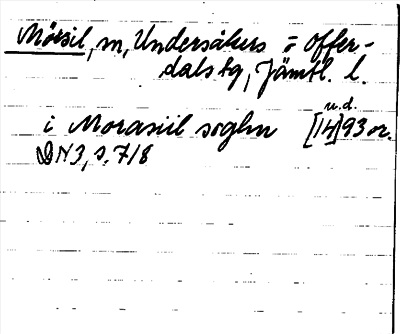 Mörsil, m, Undersåkers o Offer-
dals tg, Jämtl. l.
u.d.
i Morasiil soghn [14]93 or.
DN 3, s. 718